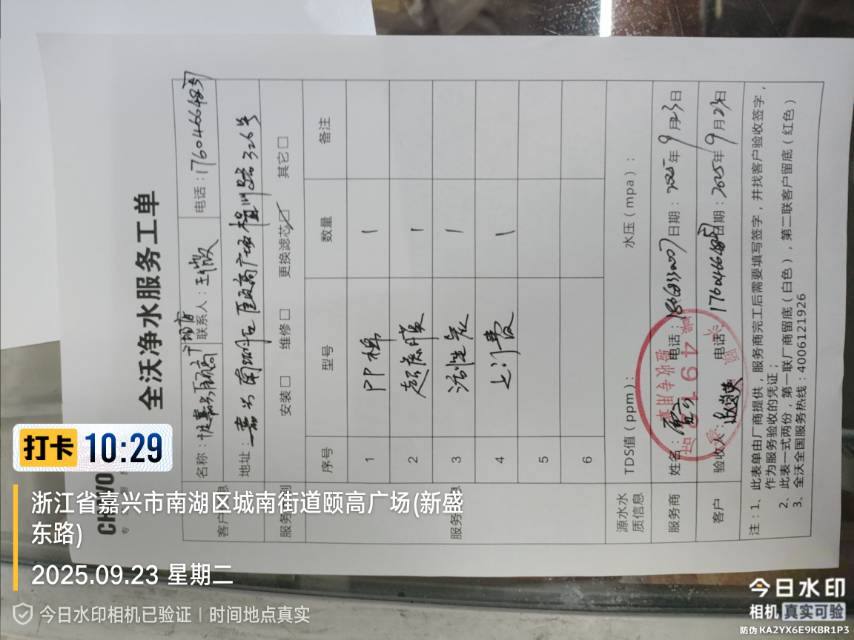 全沃净水服务工单
名称：
联系人：
电话：17604664835
地址：嘉兴南湖区颐高广场
326号
安装□ 维修□ 更换滤芯☑ 其它□
序号 型号 数量 备注
1 PP棉 1
2 超滤膜 1
3 活性炭 1
4 上门费 1
5
6
源水水质信息 TDS值（ppm）： 水压（mpa）：
服务商 姓名： 电话： 日期：2025年9月23日
客户 验收人： 电话： 日期：2025年9月23日
注：1、此表单由厂商提供，服务商完工后需要填写签字，并找客户验收签字，
作为服务验收的凭证；
2、此表一式两份，第一联厂商留底（白色），第二联客户留底（红色）
3、全沃全国服务热线：4006121926
4919
验收专用章
打卡 10:29
浙江省嘉兴市南湖区城南街道颐高广场(新盛
东路)
2025.09.23 星期二
今日水印相机已验证 | 时间地点真实
今日水印
相机 真实可验
防伪 KA2YX6E9KBR1P3